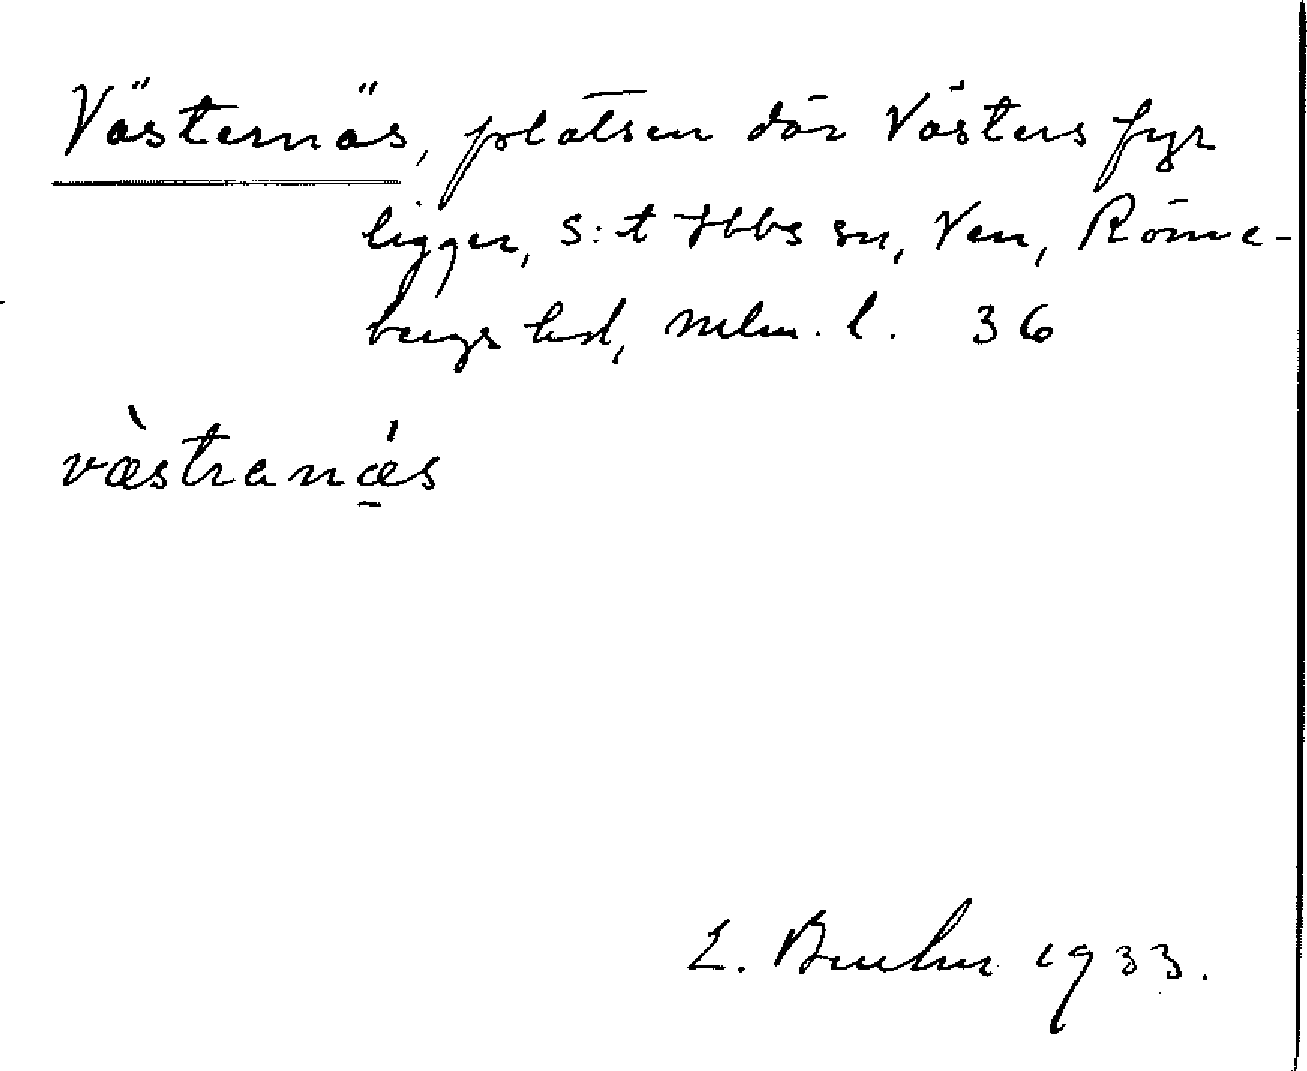 Västernäs, platsen där Västers fyr
ligger, S:t Ibbs sn, Ven, Rönne-
bergs hd, Mlm. l. 36
væ̀stranǽ̱s
L. Bruhn 1933.